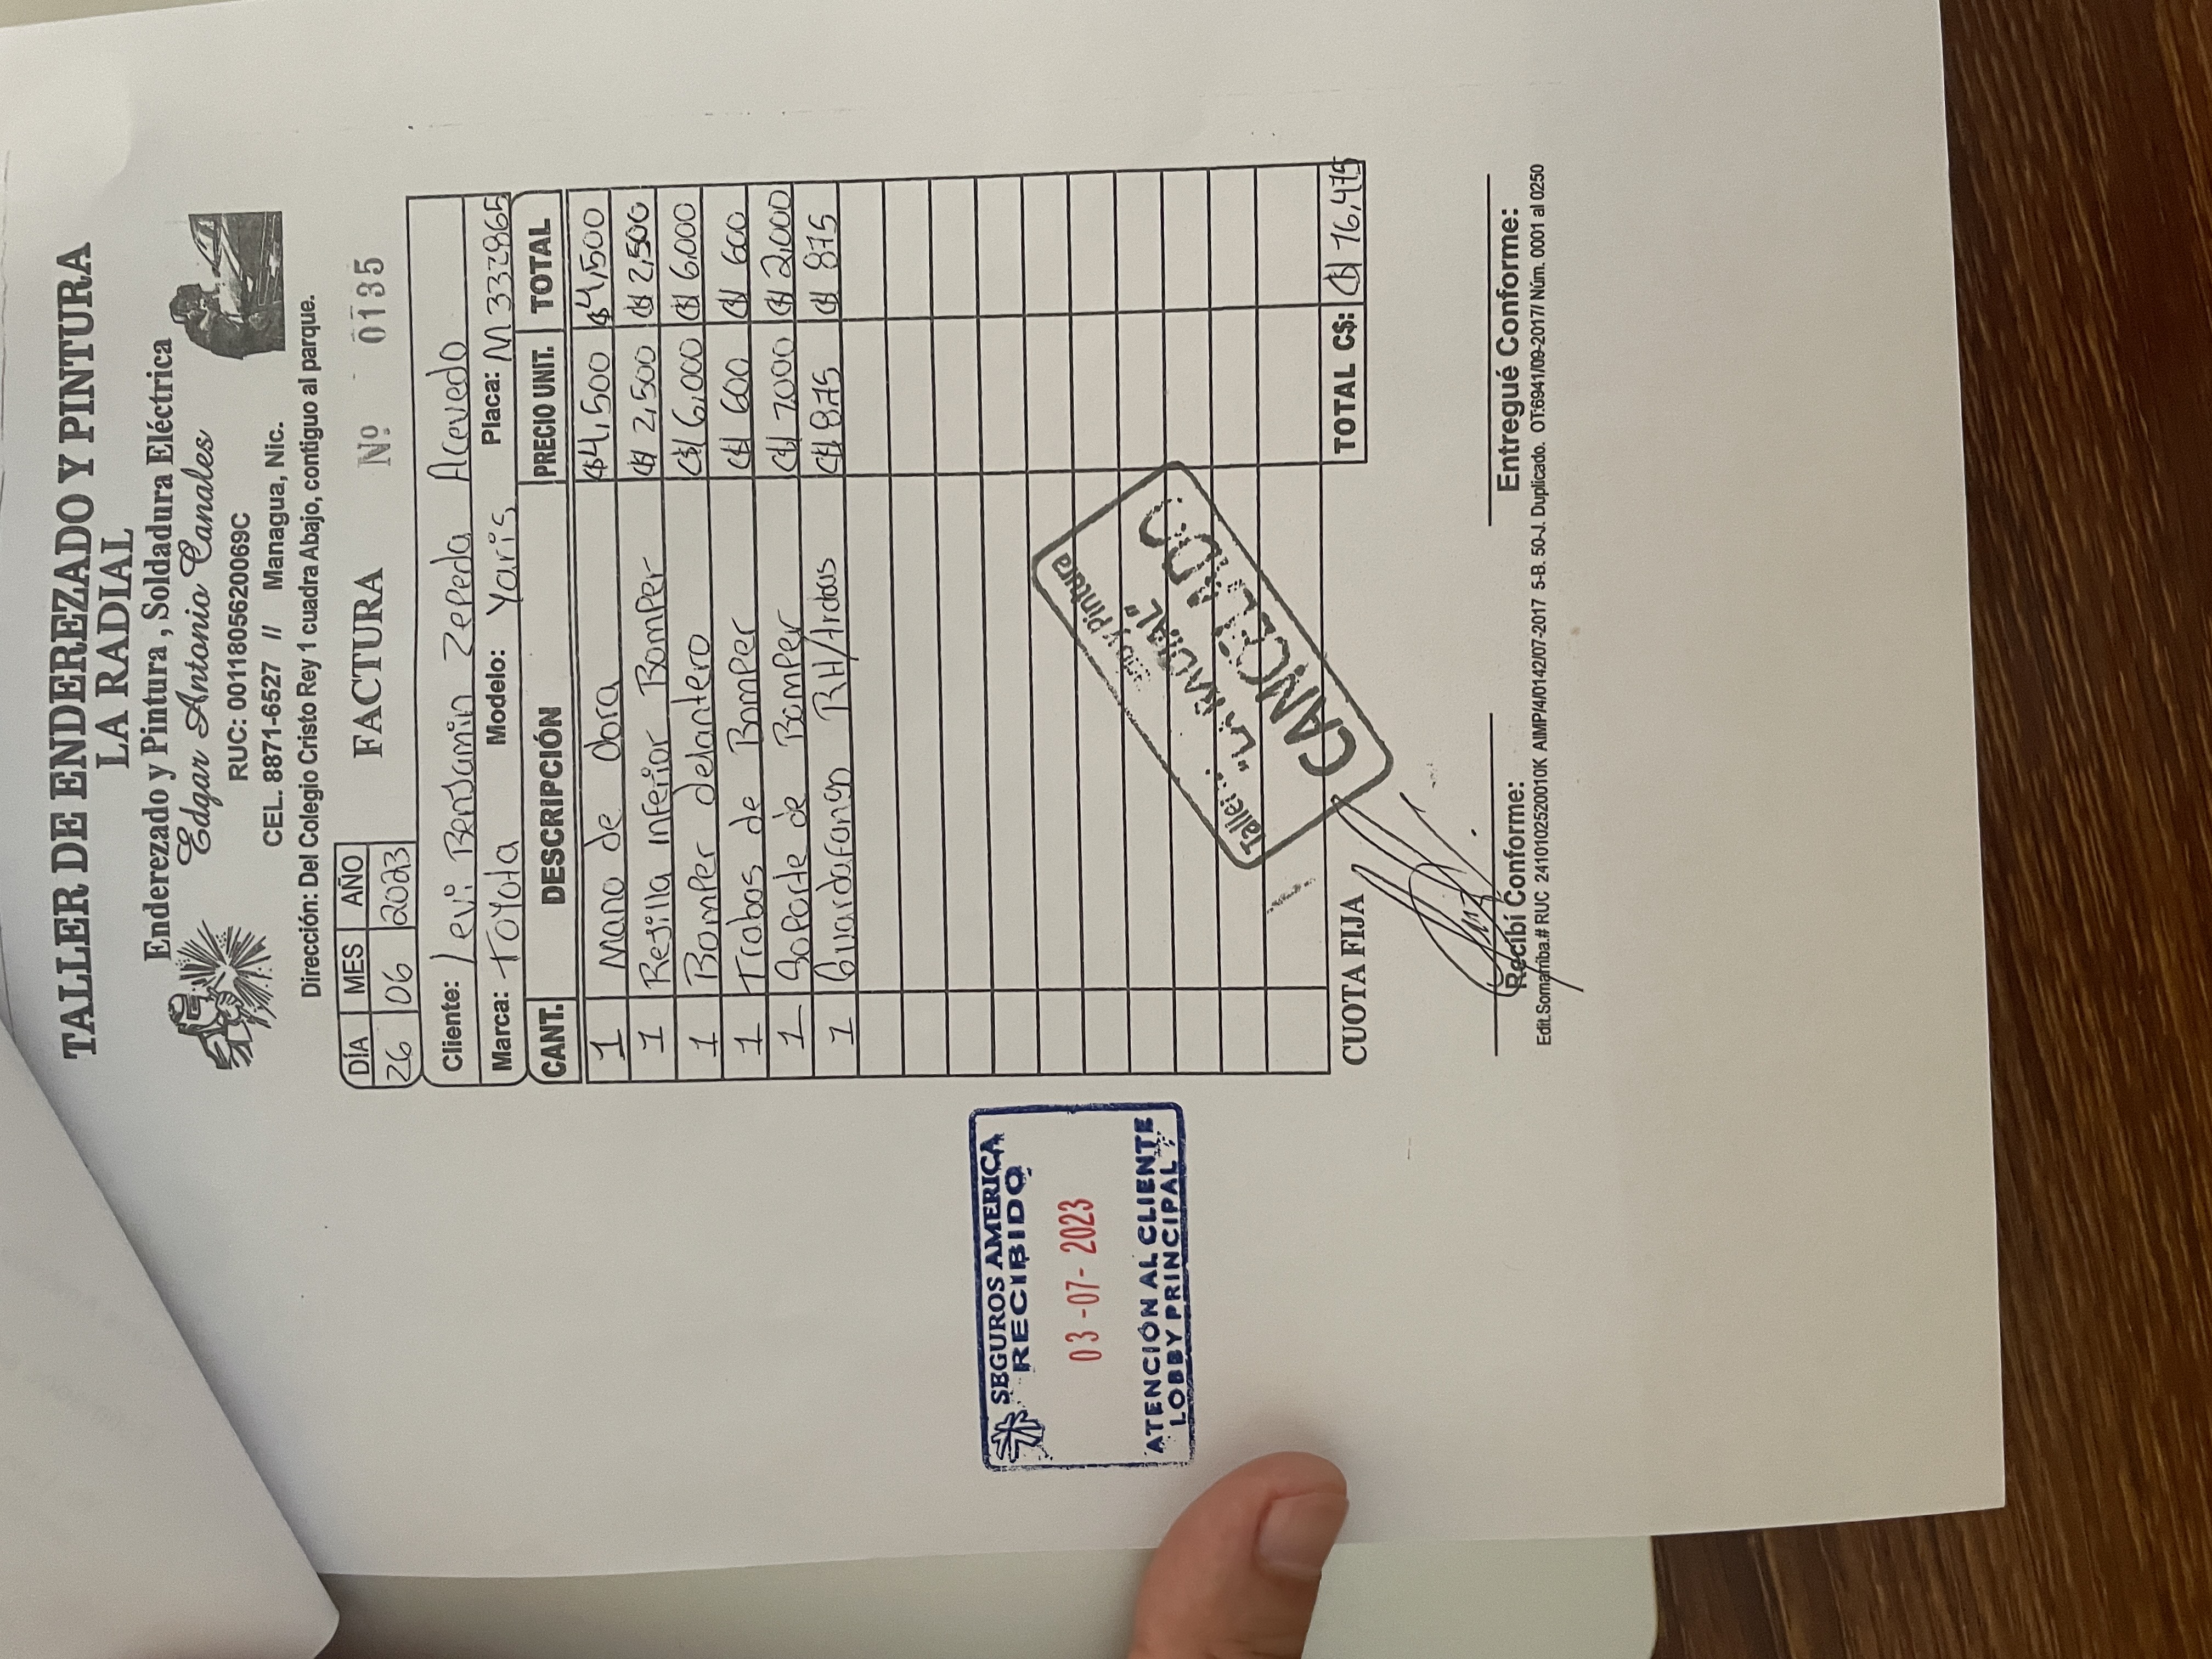 TALLER DE ENDEREZADO Y PINTURA
LA RADIAL
Enderezado y Pintura , Soldadura Eléctrica
Edgar Antonio Canales
RUC: 0011805620069C
CEL. 8871-6527 // Managua, Nic.
Dirección: Del Colegio Cristo Rey 1 cuadra Abajo, contiguo al parque.
DÍA MES AÑO
26 06 2023
FACTURA Nº 0135
Cliente: Levi Benjamin Zepeda Acevedo
Marca: Toyota Modelo: Yaris Placa: M 332865
CANT. DESCRIPCIÓN PRECIO UNIT. TOTAL
1 Mano de Obra C$4,500 C$4,500
1 Rejilla inferior Bomper C$ 2,500 C$ 2,500
1 Bomper delantero C$ 6,000 C$ 6,000
1 Trabas de Bomper C$ 600 C$ 600
1 Soporte de Bomper C$ 2,000
1 Guardafango RH/ C$ 875 C$ 875
SEGUROS AMERICA
RECIBIDO
03-07-2023
ATENCIÓN AL CLIENTE
LOBBY PRINCIPAL
Taller y Pintura
"LA RADIAL"
CANCELADO
CUOTA FIJA
TOTAL C$: C$ 16,475
Recibí Conforme: Entregué Conforme:
Edit.Somarriba.# RUC 2410102520010K AIMP/4/0142/07-2017 5-B. 50-J. Duplicado. OT:6941/09-2017/ Núm. 0001 al 0250